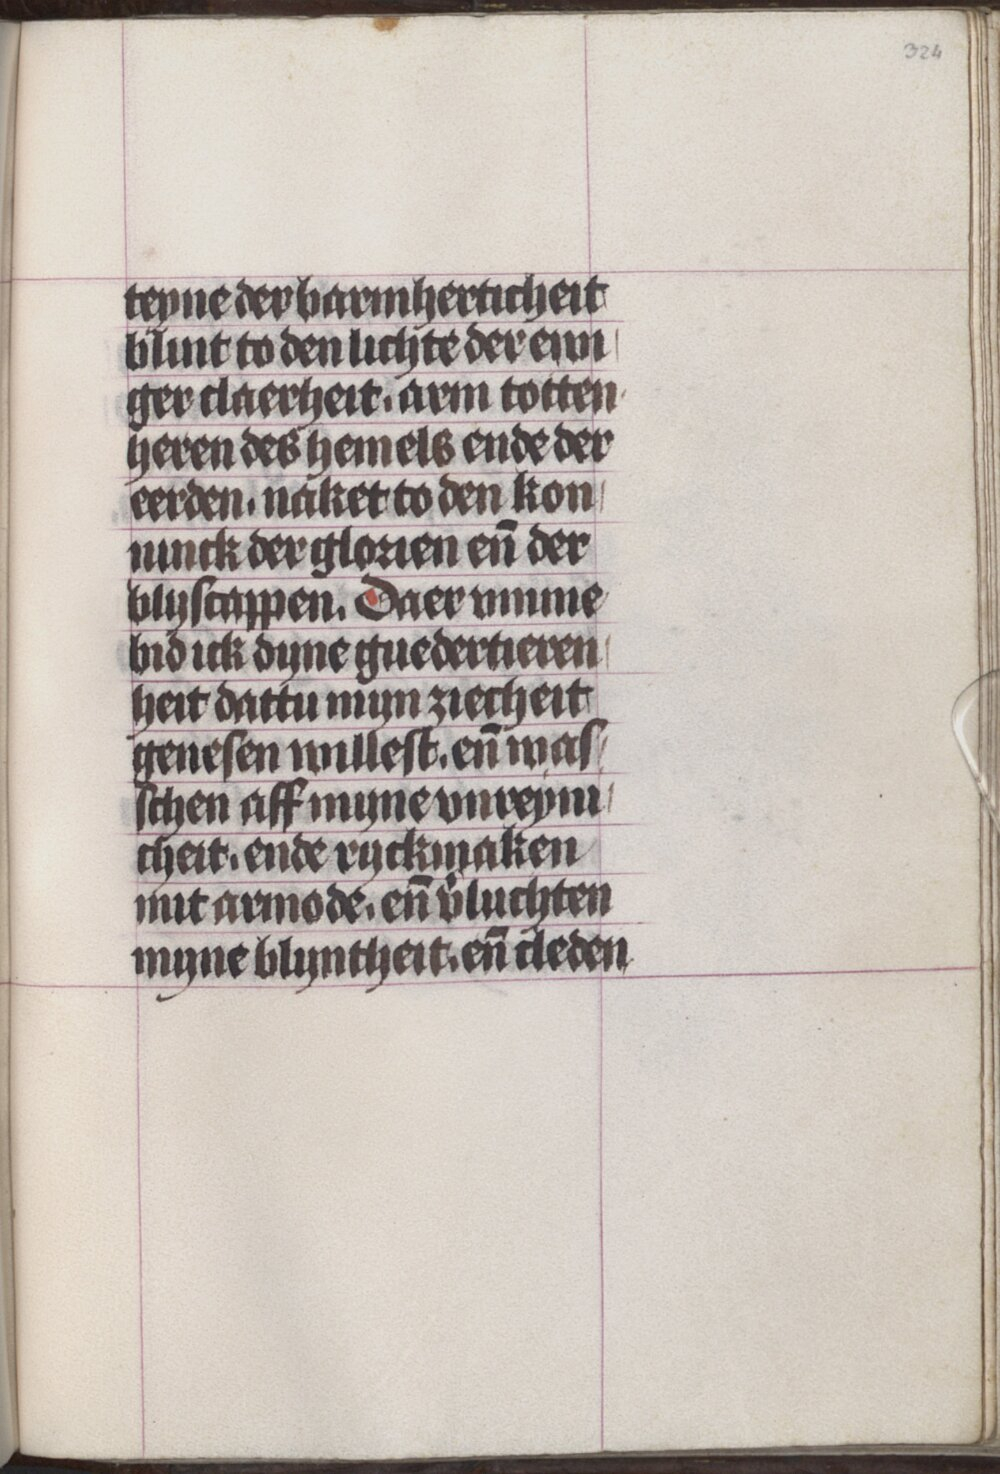 324
teyne der barmherticheit
blint to den lichte der ewi
ger claerheit. arm totten
heren des hemels ende der
eerden. naket to den kon
ninck der glorien en̄ der
blijscappen. Daer vmme
bid ick dyne guedertieren
heit dattu myn ziecheit
genesen willest. en̄ was
schen aff myne vnreyni
cheit. ende ryckmaken
mit armode. en̄ v̉luchten
myne blyntheit. en̄ cleden